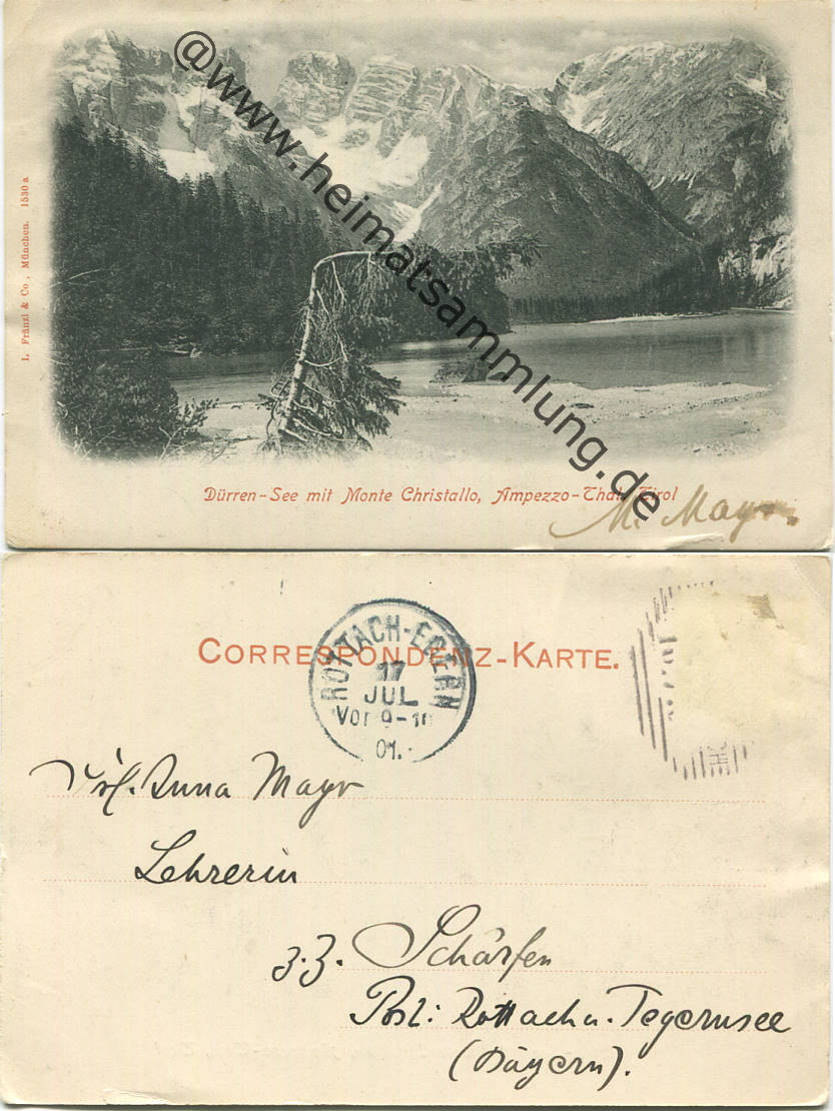 @www.heimatsammlung.de
L. Fränzl & Co., München. 1530 a
Dürren-See mit Monte Christallo, Ampezzo-Thal, Tirol
M. Mayr.
CORRESPONDENZ-KARTE.
ROTTACH-EGERN
17
JUL
Vor 9-10
01.
Frl. Anna Mayr
Lehrerin
z. Z. Schärfen
Post: Rottach a. Tegernsee
(Bayern).